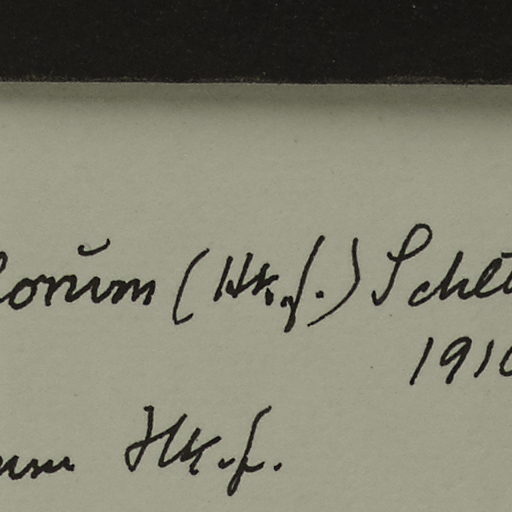 lorum (Hk.f.) Schlt
191
um Hk.f.